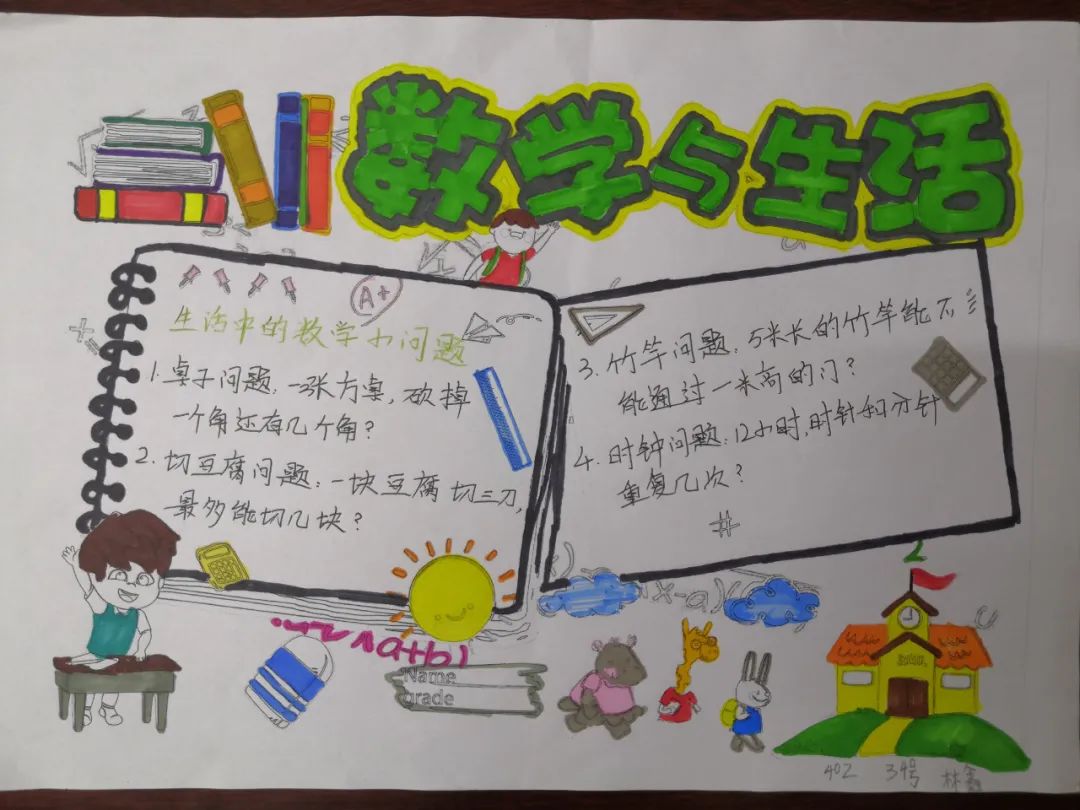 数学与生活
A+
生活中的数学小问题
1.桌子问题:一张方桌,砍掉
一个角还有几个角?
2.切豆腐问题:一块豆腐切三刀,
最多能切几块?
3.竹竿问题:5米长的竹竿能不
能通过一米高的门?
4.时钟问题:12小时,时针和分针
重复几次?
#
(x-a)
(a+b)
Name
grade
402 34号 林鑫